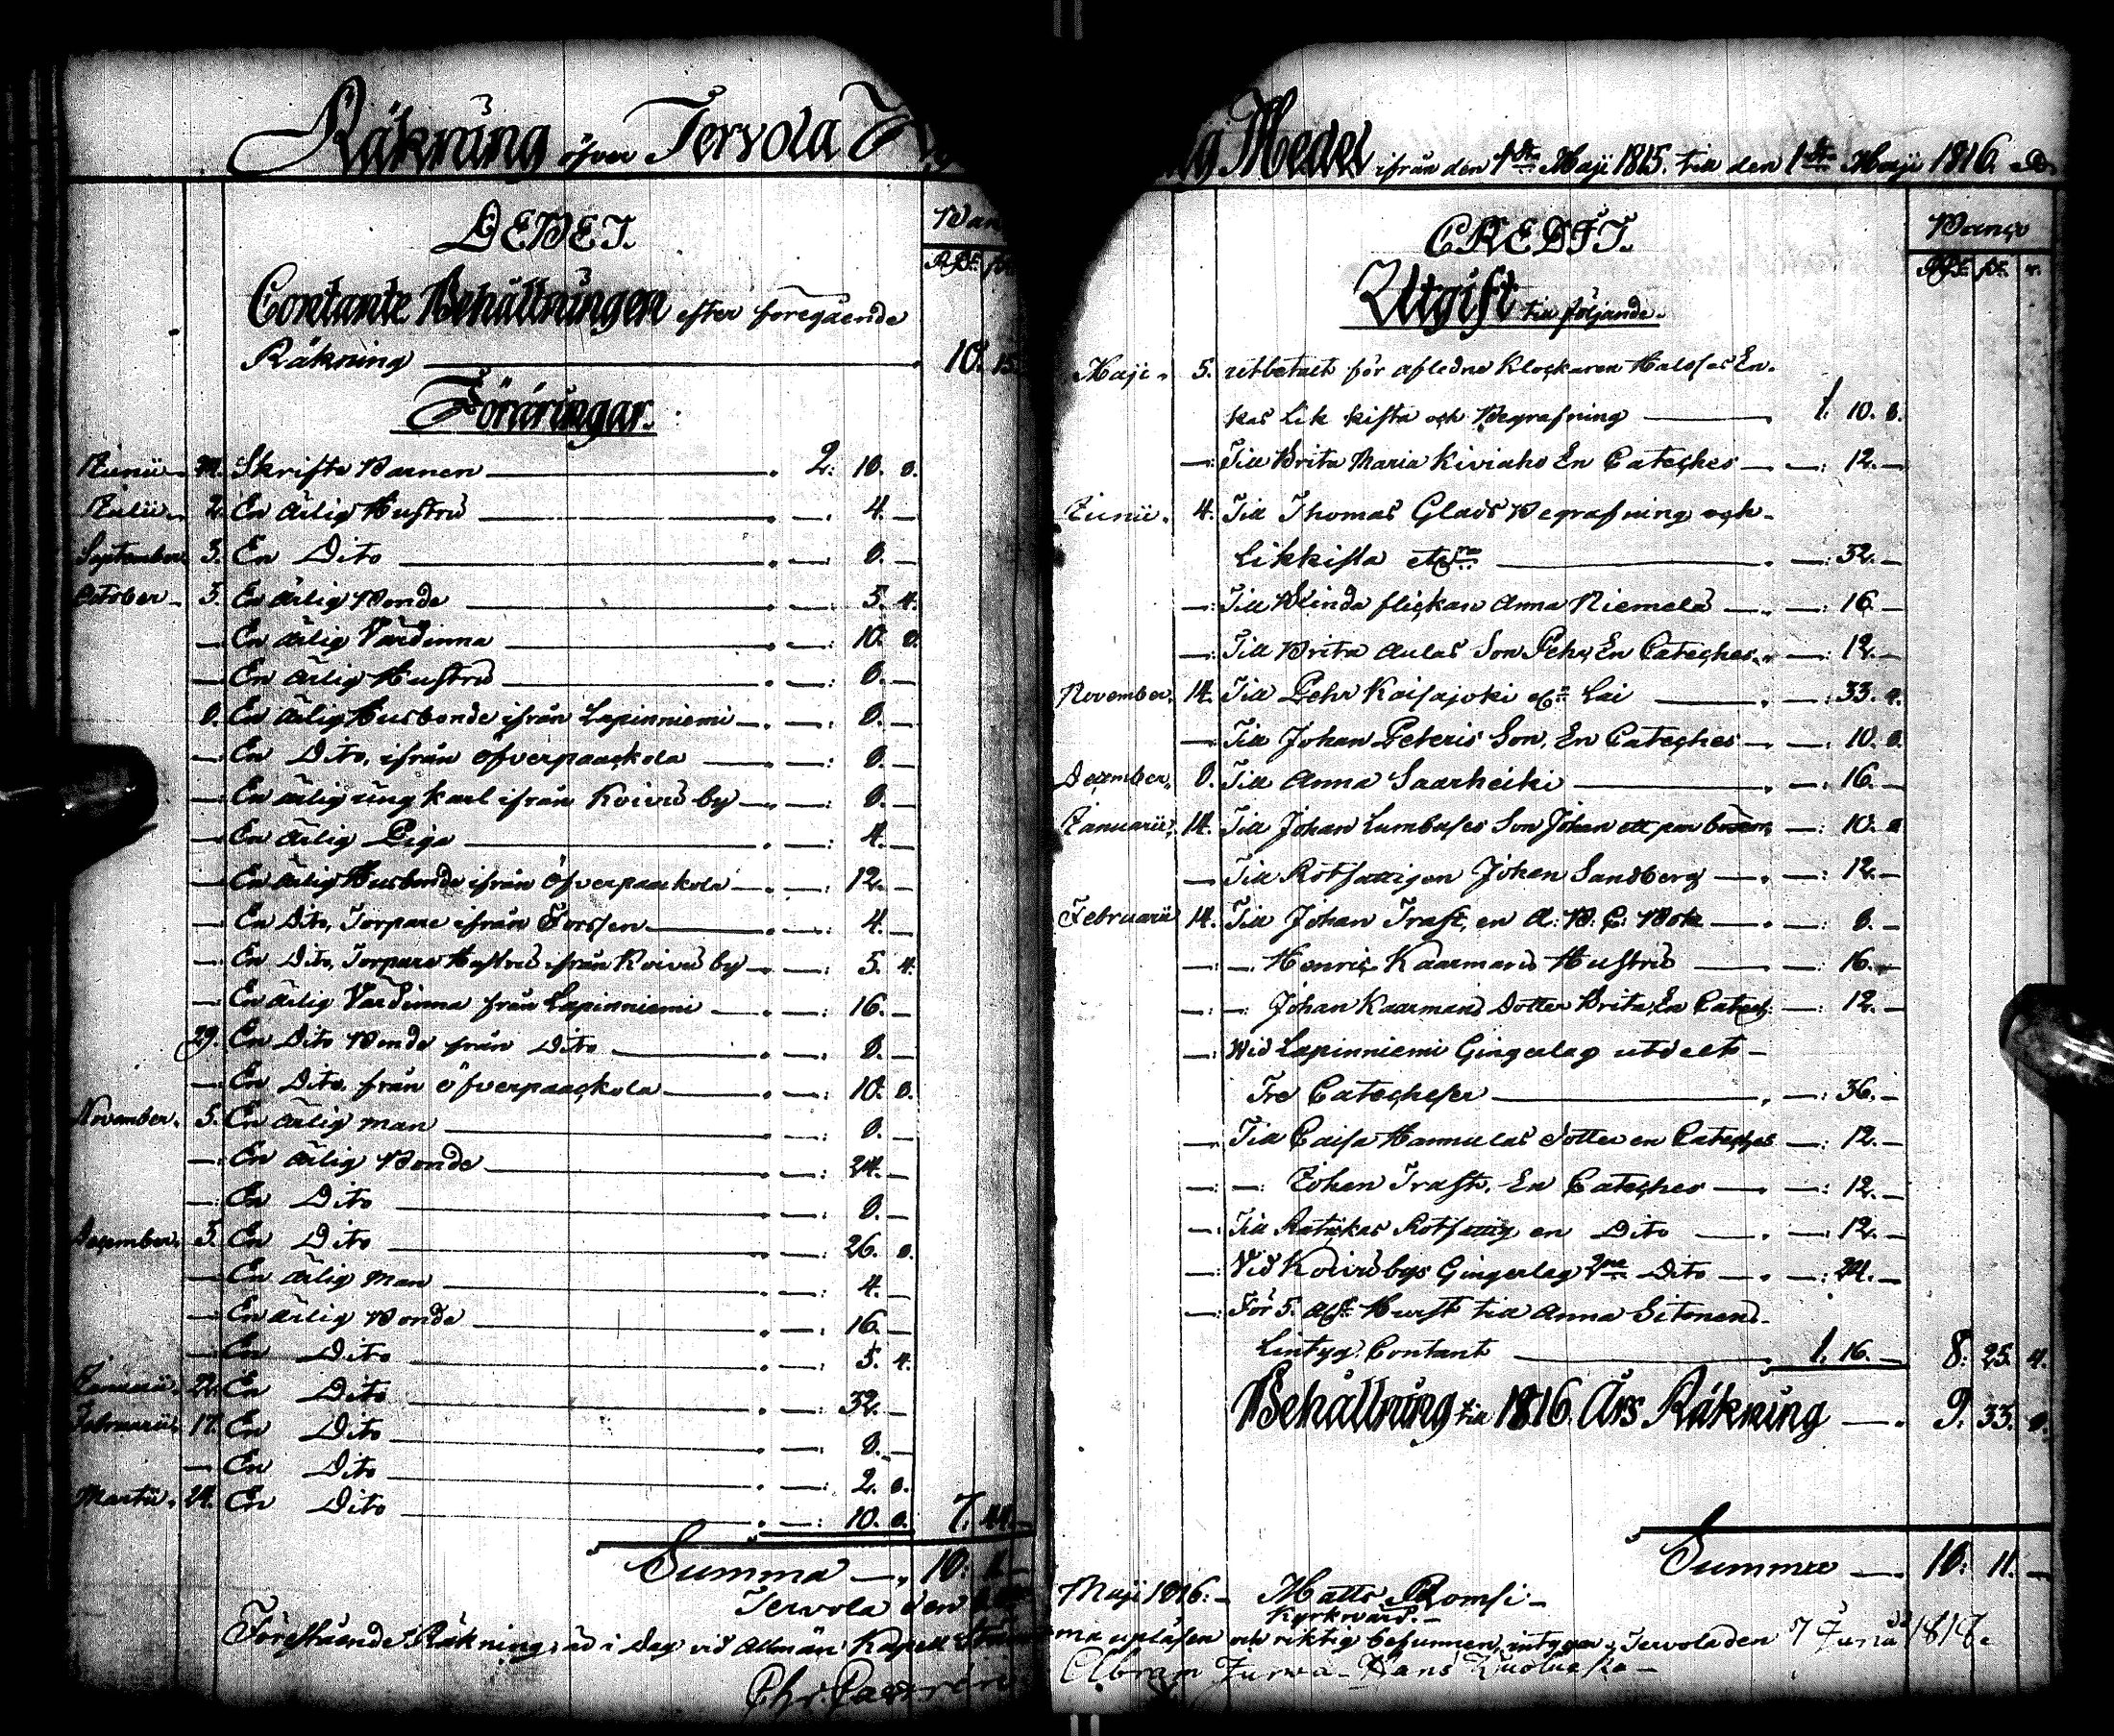 Räkning öfver Tervola
DEBET.
Contante Behållningen efter föregående
Räkning 10. 15
Föräringar.
Junii Skrifte Barnen 2. 10. 8.
Julii 2. En ärlig Hustru 4.
September 3. En Dito 8.
October 3. En ärlig Bonde 5. 4.
En ärlig Värdinna 10. 8.
En ärlig Hustru 8.
8. En ärlig Husbonde ifrån Lapinniemi 8.
En Dito, ifrån Öfverpaackola 8.
En ärlig ung karl ifrån Koivu by 8.
En ärlig Piga 4.
En ärlig Husbonde ifrån Öfverpaackola 12.
En Dito, Torpare ifrån Forssen 4.
En Dito, Torpare Hustru ifrån Koivu by 5. 4.
En ärlig Värdinna från Lapinniemi 16.
29. En Dito Bonde från Dito 8.
En Dito från Öfverpaackola 10. 8.
November 5. En ärlig man 8.
En ärlig Bonde 24.
En Dito 8.
December 3. En Dito 26. 8.
En ärlig man 4.
En ärlig Bonde 16.
En Dito 5. 4.
Januarii 22. En Dito 32.
Februarii 17. En Dito 8.
En Dito 2. 8.
Martii 24. En Dito 10. 8. 7.
Summa
Tervola den
Förestående Räkning, är i dag vid allmän Kapell
Medel ifrån den 1sta Maji 1815. till den 1sta Maji 1816.
CREDIT.
Banco
Utgift till följande.
Maji 5. utbetalt för afledne Klockaren Halsses En-
kas Lik kista och Begrafning 1. 10. 8.
Till Brita Maria Kiviaho En Cateches 12.
Junii 4. Till Thomas Glads Begrafning och
Likkista 32.
Till Blinda flickan Anna Niemelä 16.
Till Brita Aulas Son Pehr, En Cateches 12.
November 14. Till Pehr Kaisajoki Lai 33. 4.
Till Johan Peteris Son, En Cateches 10. 8.
December 8. Till Anna Saarheiki 16.
Januarii 14. Till Johan Lumbuses Son Johan ett par 10. 8
Till Rotfattigen Johan Sandberg 12.
Februarii 14. Till Johan Trast, en A: B: C: Bok 8.
Henric Kaarmans Hustru 16.
Johan Kaarmans Dotter Brita, En Catech: 12.
Wid Lapinniemi Gingerlag utdelt
Tre Catecheser 36.
Till Caisa Hannulas dotter en Cateches 12.
Johan Trast, En Cateches 12.
Till Ratickas Rotfattig en Dito 12.
Vid Koivu bys Gingerlag 2ne Dito 24.
För 5. till Anna
Lintyg: Contant 1. 16. 8. 25. 4.
Behållning till 1816. Års Räkning 9. 33. 8.
Summa 18. 11.
Maji 1816. Matts Romsi
Kyrkvärd.
upläsen och riktig befunnen, intygar, Tervola den 7 1817.
Abram Jurva Hans